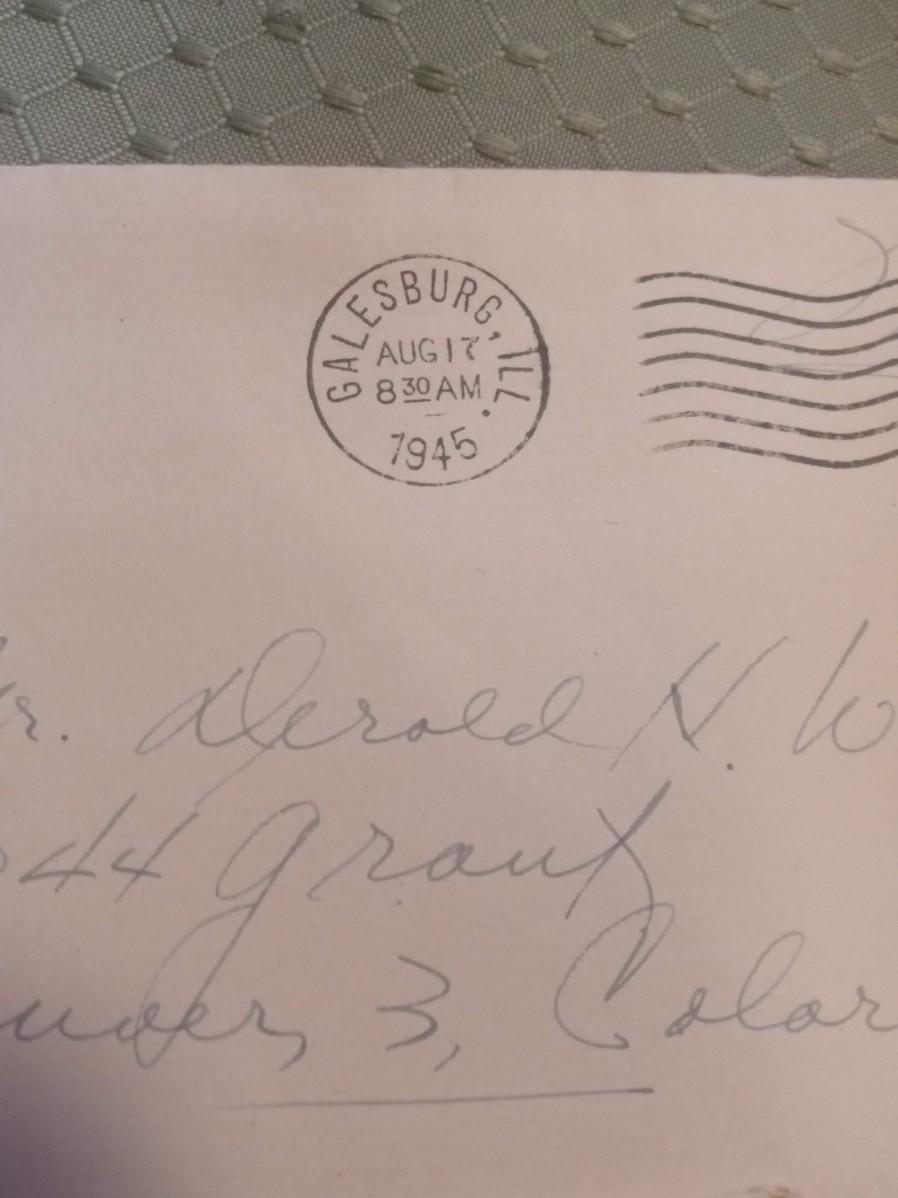 GALESBURG, ILL.
AUG 17
8 30 AM
1945
r. Derold H. W
44 Grant
nver, 3, Color